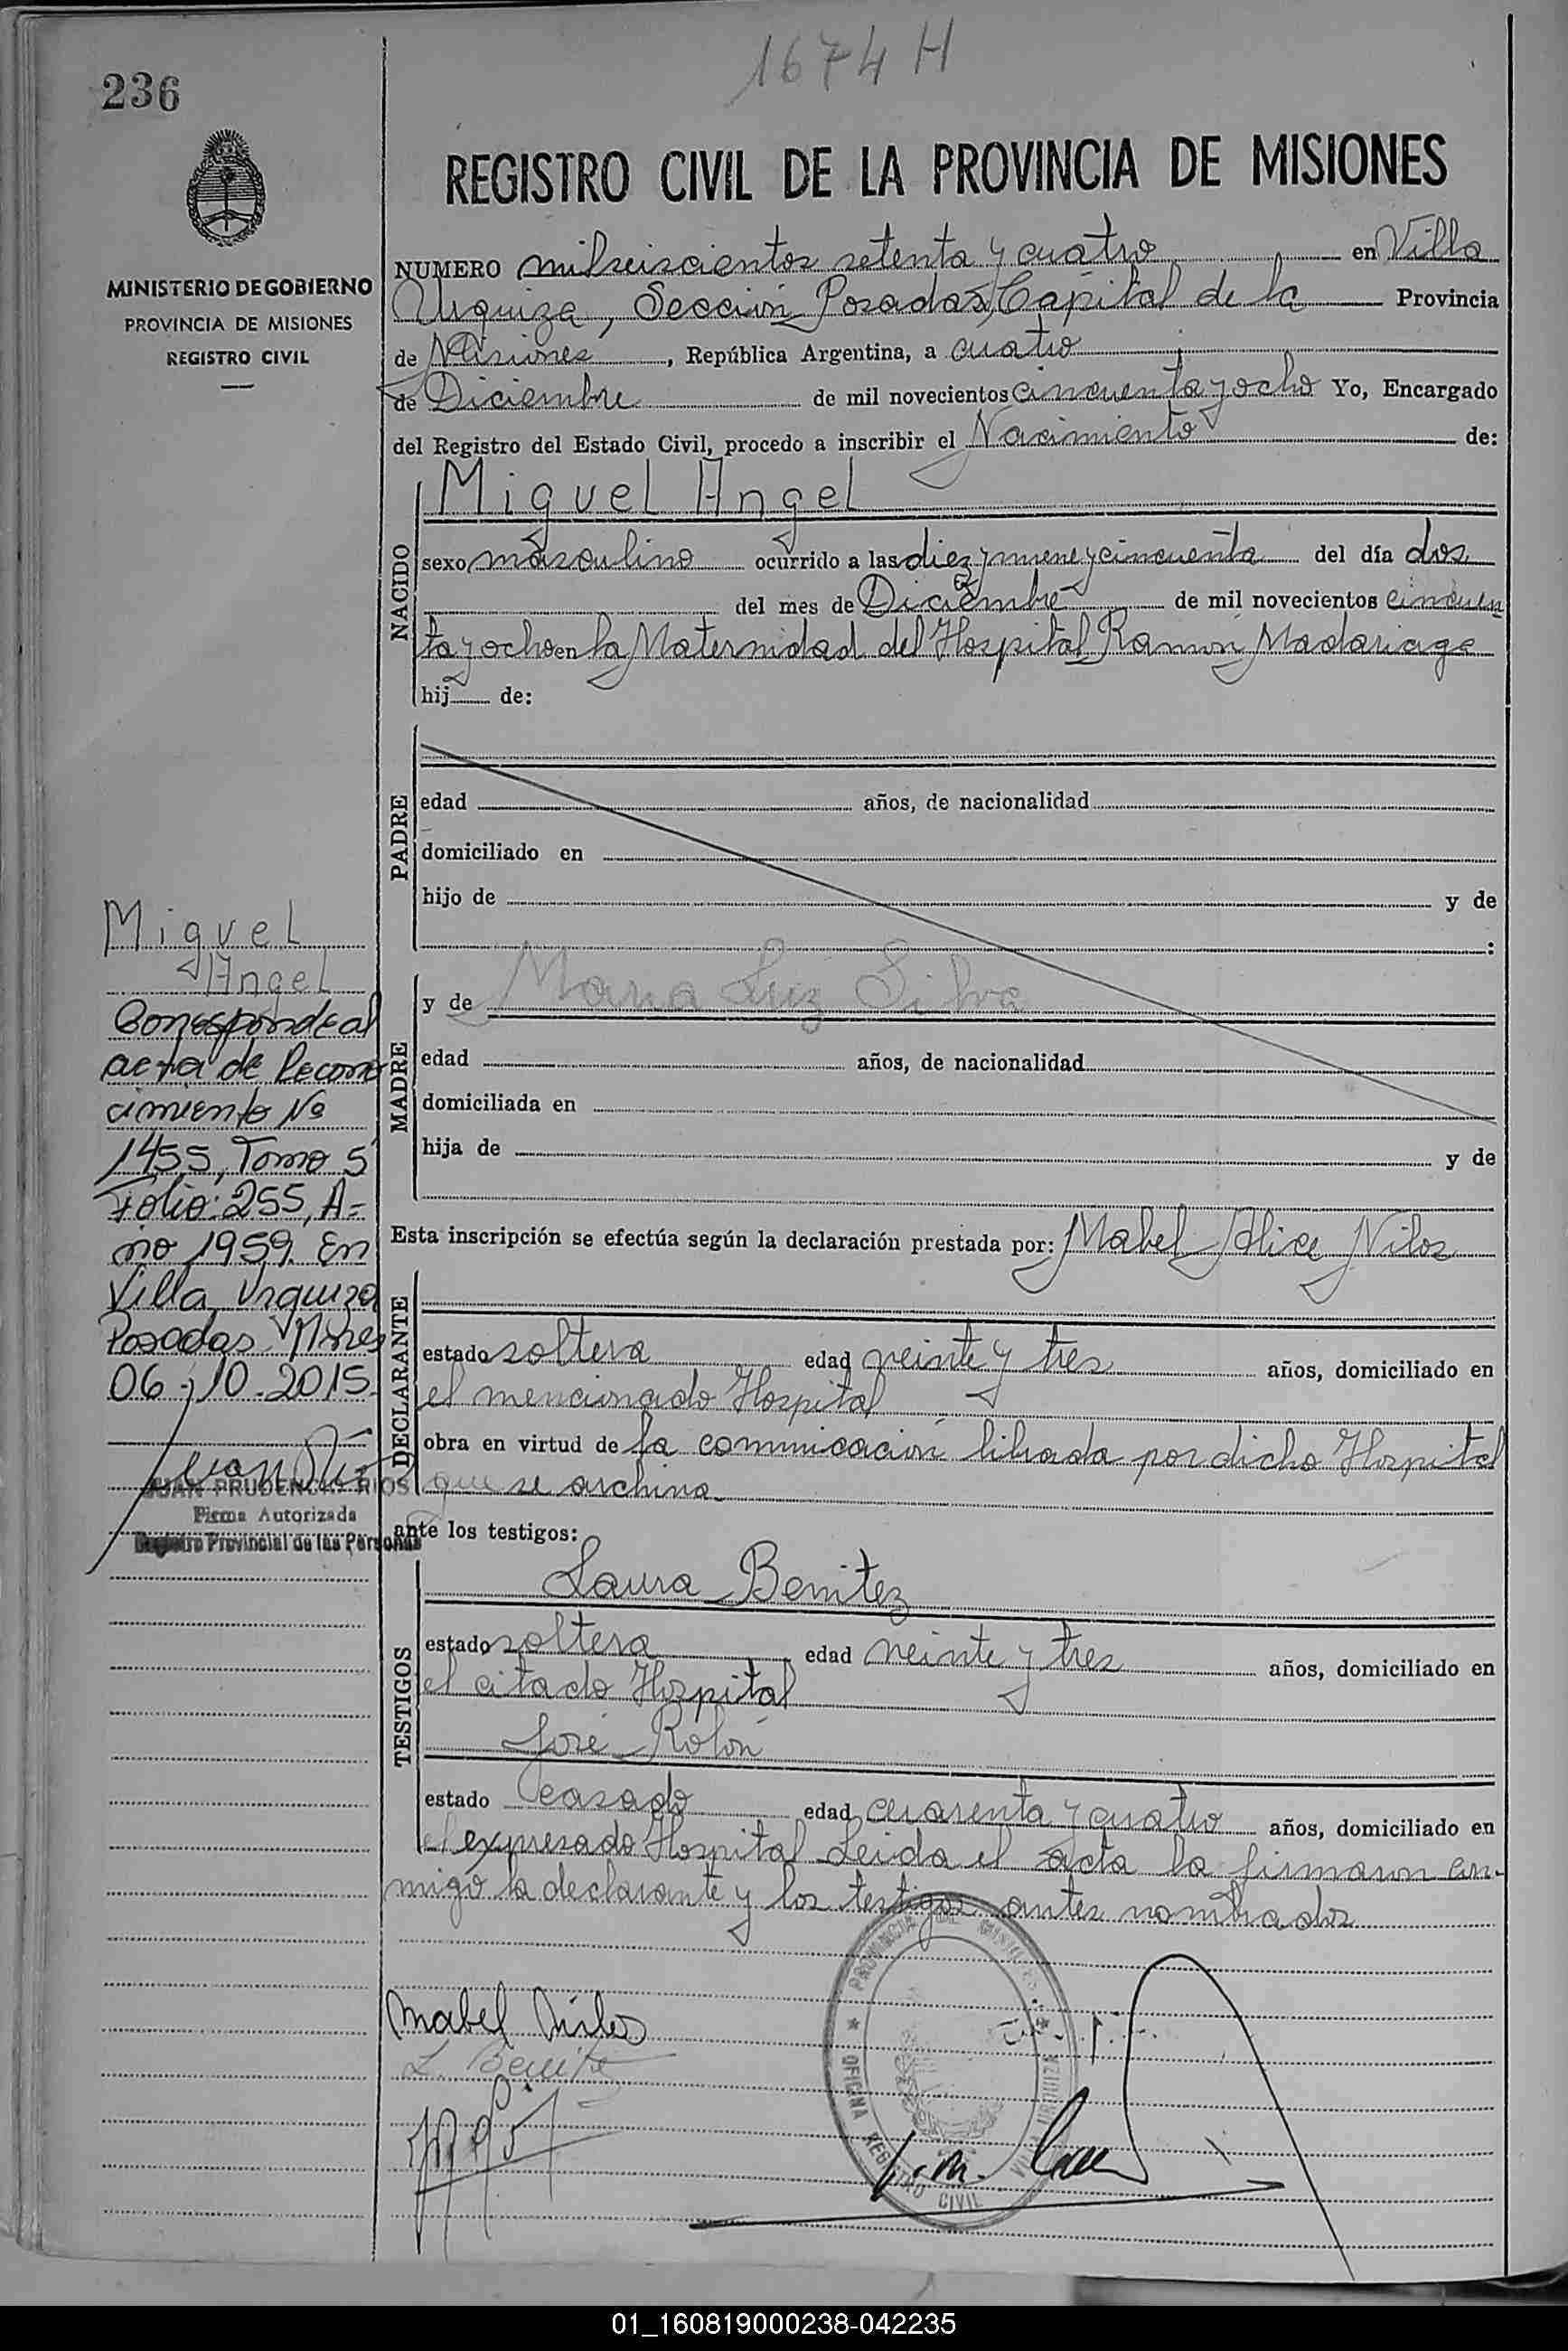 1674 H
236
REGISTRO CIVIL DE LA PROVINCIA DE MISIONES
MINISTERIO DE GOBIERNO
PROVINCIA DE MISIONES
REGISTRO CIVIL
NUMERO milseiscientos setenta y cuatro en Villa
Urquiza, Sección Posadas, Capital de la Provincia
de Misiones, República Argentina, a cuatro
de Diciembre de mil novecientos cincuenta y ocho Yo, Encargado
del Registro del Estado Civil, procedo a inscribir el Nacimiento de:
NACIDO
Miguel Angel
sexo masculino ocurrido a las diez y nueve y cincuenta del día dos
del mes de Diciembre de mil novecientos cincuen
ta y ocho en la Maternidad del Hospital Ramón Madariaga
hij de:
PADRE
edad años, de nacionalidad
domiciliado en
hijo de y de
:
MADRE
y de Maria Luz Silva
edad años, de nacionalidad
domiciliada en
hija de y de
Esta inscripción se efectúa según la declaración prestada por: Mabel Alice Nilos
DECLARANTE
estado soltera edad veinte y tres años, domiciliado en
el mencionado Hospital
obra en virtud de la comunicación librada por dicho Hospital
que se archiva
ante los testigos:
TESTIGOS
Laura Benitez
estado soltera edad veinte y tres años, domiciliado en
el citado Hospital
José Rolón
estado casado edad cuarenta y cuatro años, domiciliado en
el expresado Hospital Leida el acta la firmaron con-
migo la declarante y los testigos antes nombrados
Miguel
Angel
Corresponde al
acta de Recono
cimiento Nº
1455, Tomo 5
Folio: 255, A=
ño 1959. En
Villa Urquiza
Posadas Mnes
06-10-2015.
JUAN PRUDENCIO RIOS
Firma Autorizada
Registro Provincial de las Personas
Mabel Nilos
L. Benitez
PROVINCIA DE MISIONES
OFICINA REGISTRO CIVIL VILLA URQUIZA
01_160819000238-042235